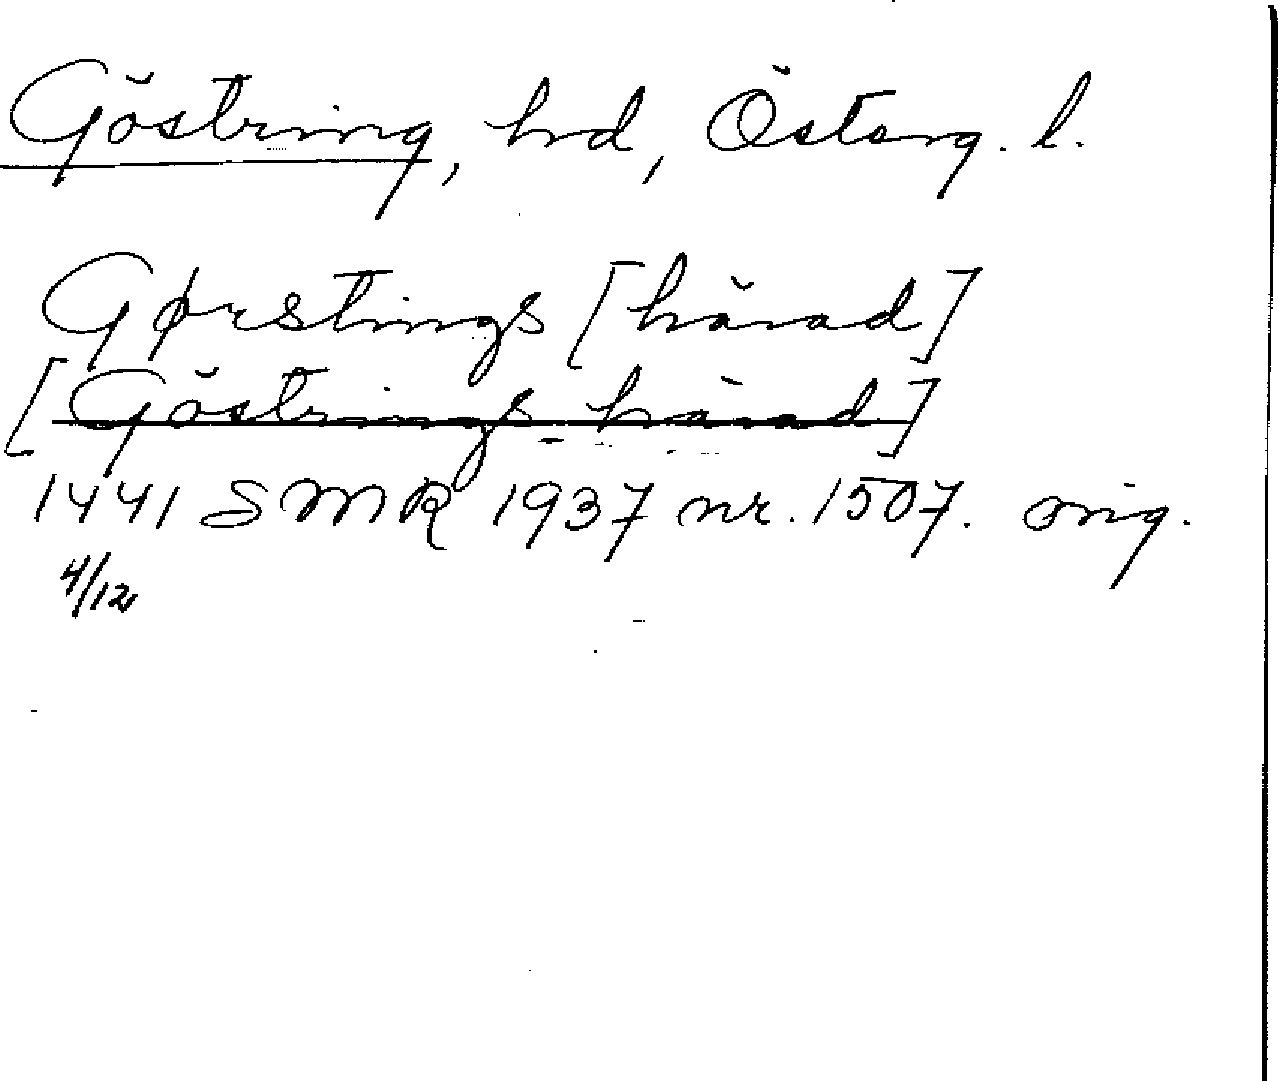 Göstring, hd, Österg. l.
Gørstings [härad]
[Göstrings härad]
1441 SMR 1937 nr. 1507. orig.
4/12